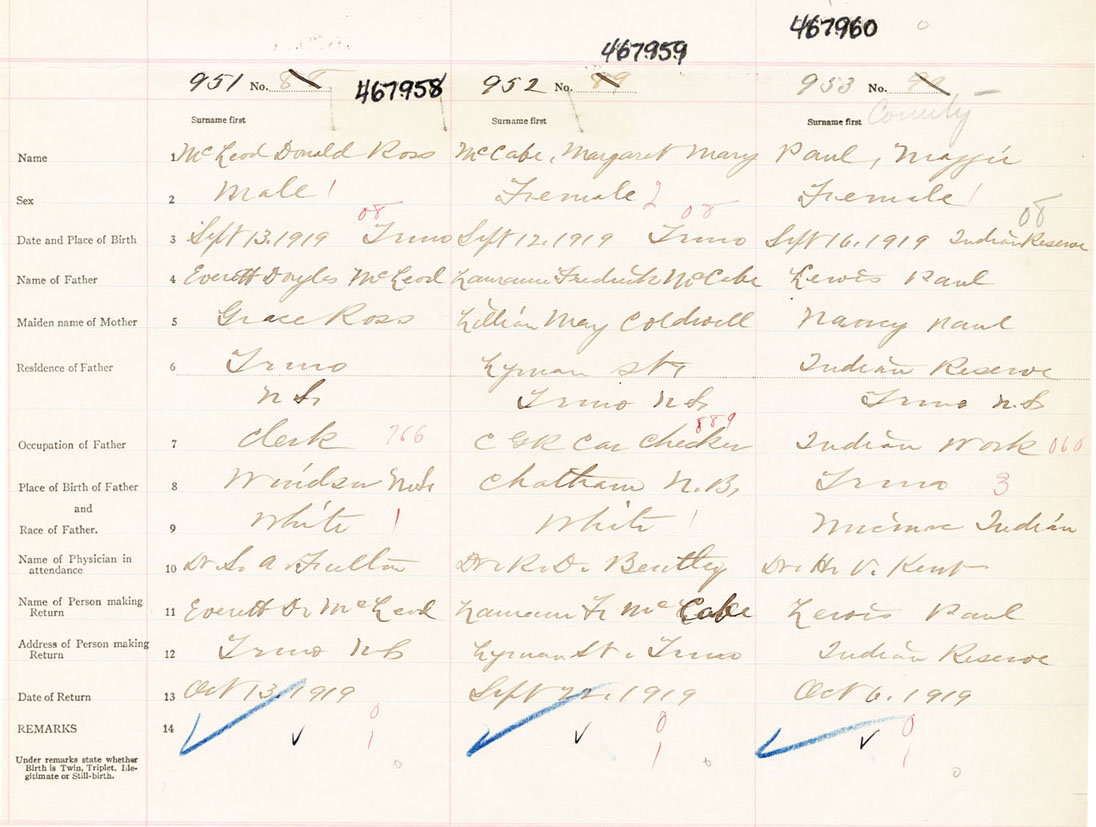 467960
467959
951 No. 88 467958 952 No. 89 953 No.
Surname first Surname first Surname first County
Name 1 McLeod Donald Ross McCabe, Margaret Mary Paul, Maggie
Sex 2 Male 1 Female 2 Female 1
08 08 08
Date and Place of Birth 3 Sept 13. 1919 Truro Sept 12. 1919 Truro Sept 16. 1919 Indian Reserve
Name of Father 4 Everett Douglas McLeod Laurance Fredrick McCabe Lewis Paul
Maiden name of Mother 5 Grace Ross Lillian May Coldwell Nancy Paul
Residence of Father 6 Truro Lyman St. Indian Reserve
N.S. Truro N.S. Truro N.S.
889
Occupation of Father 7 Clerk 766 C G R Car Checker Indian Work 060
Place of Birth of Father 8 Windsor N.S. Chatham N.B. Truro 3
and
Race of Father. 9 White 1 White 1 Micmac Indian
Name of Physician in
attendance 10 Dr. S. A. Fulton Dr. R. D. Bentley Dr. H. V. Kent
Name of Person making
Return 11 Everett D. McLeod Laurance F. McCabe Lewis Paul
Address of Person making
Return 12 Truro N.S. Lyman St. Truro Indian Reserve
Date of Return 13 Oct 13. 1919 Sept 22. 1919 Oct 6. 1919
REMARKS 14 0 0 0
1 1 1
Under remarks state whether
Birth is Twin, Triplet, Ille-
gitimate or Still-birth.